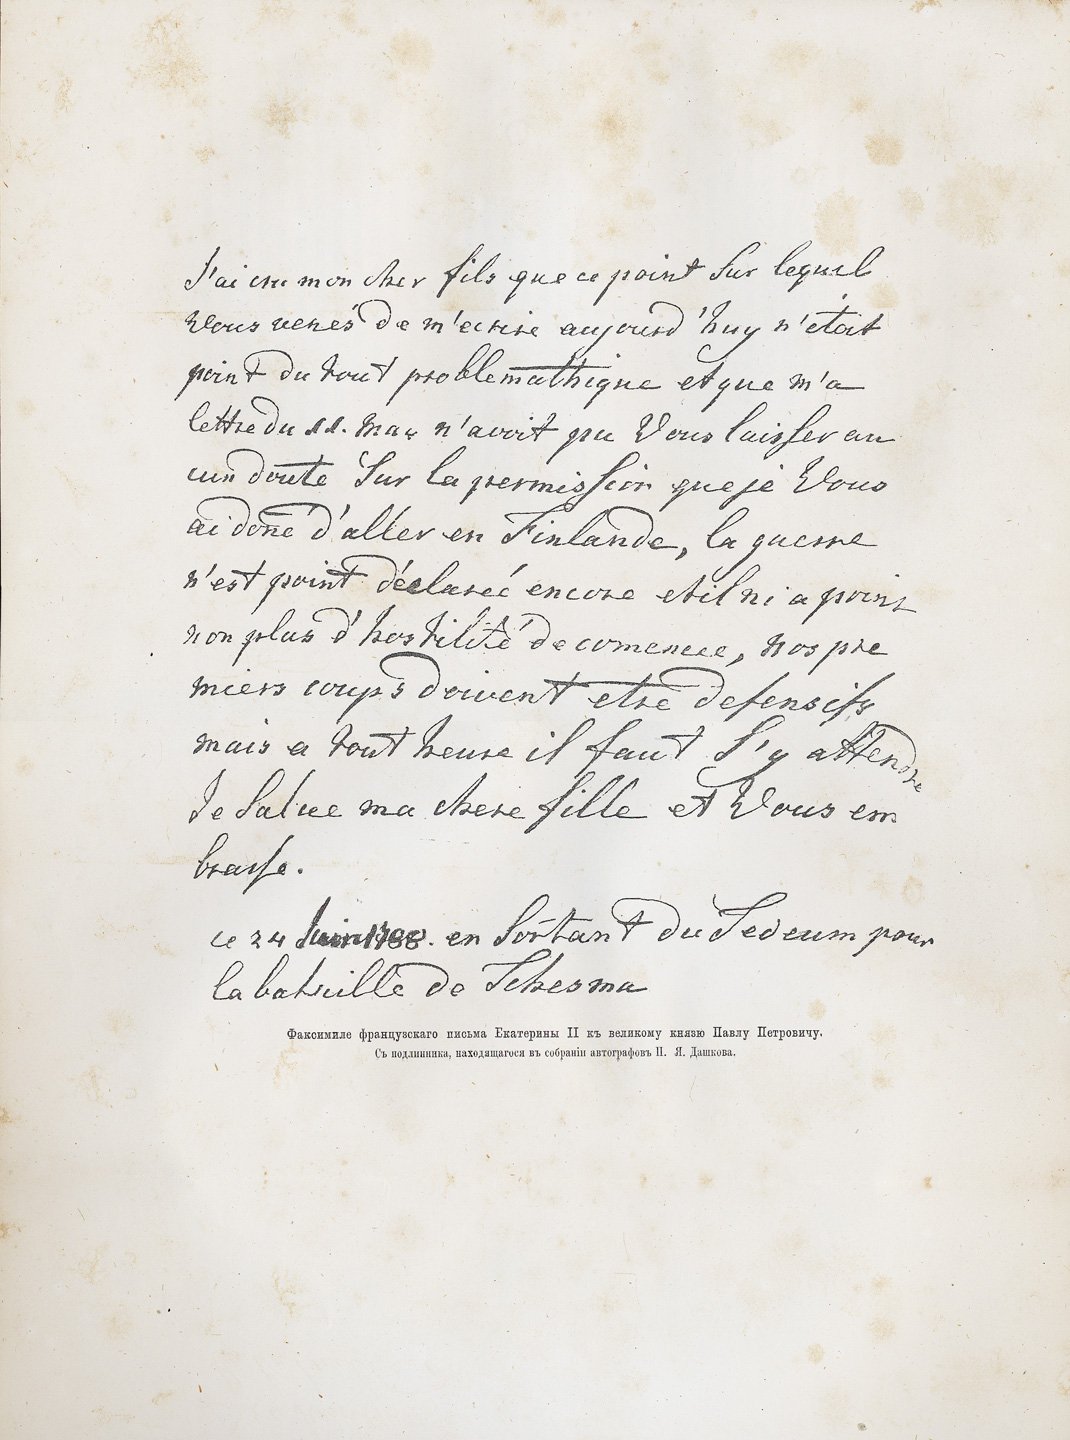 J'ai cru mon cher fils que ce point sur lequel
Vous venés de m'ecrire aujourd'huy n'étoit
point du tout problemathique et que m'a
lettre du 11. may n'avoit pu Vous laisser au
cun doute sur la permission que je Vous
ai doné d'aller en Finlande, la guerre
n'est point déclareé encore et il ni a point
non plus d'hostilité de comencee, nos pre
miers coups doivent etre defensifs
mais a tout heure il faut s'y attendre
Je salue ma chere fille et Vous em
brasse.
ce 24 Juin 1788. en sortant du Tedeum pour
la bataille de Tchesma
Факсимиле французскаго письма Екатерины II къ великому князю Павлу Петровичу.
Съ подлинника, находящагося въ собраніи автографовъ П. Я. Дашкова.